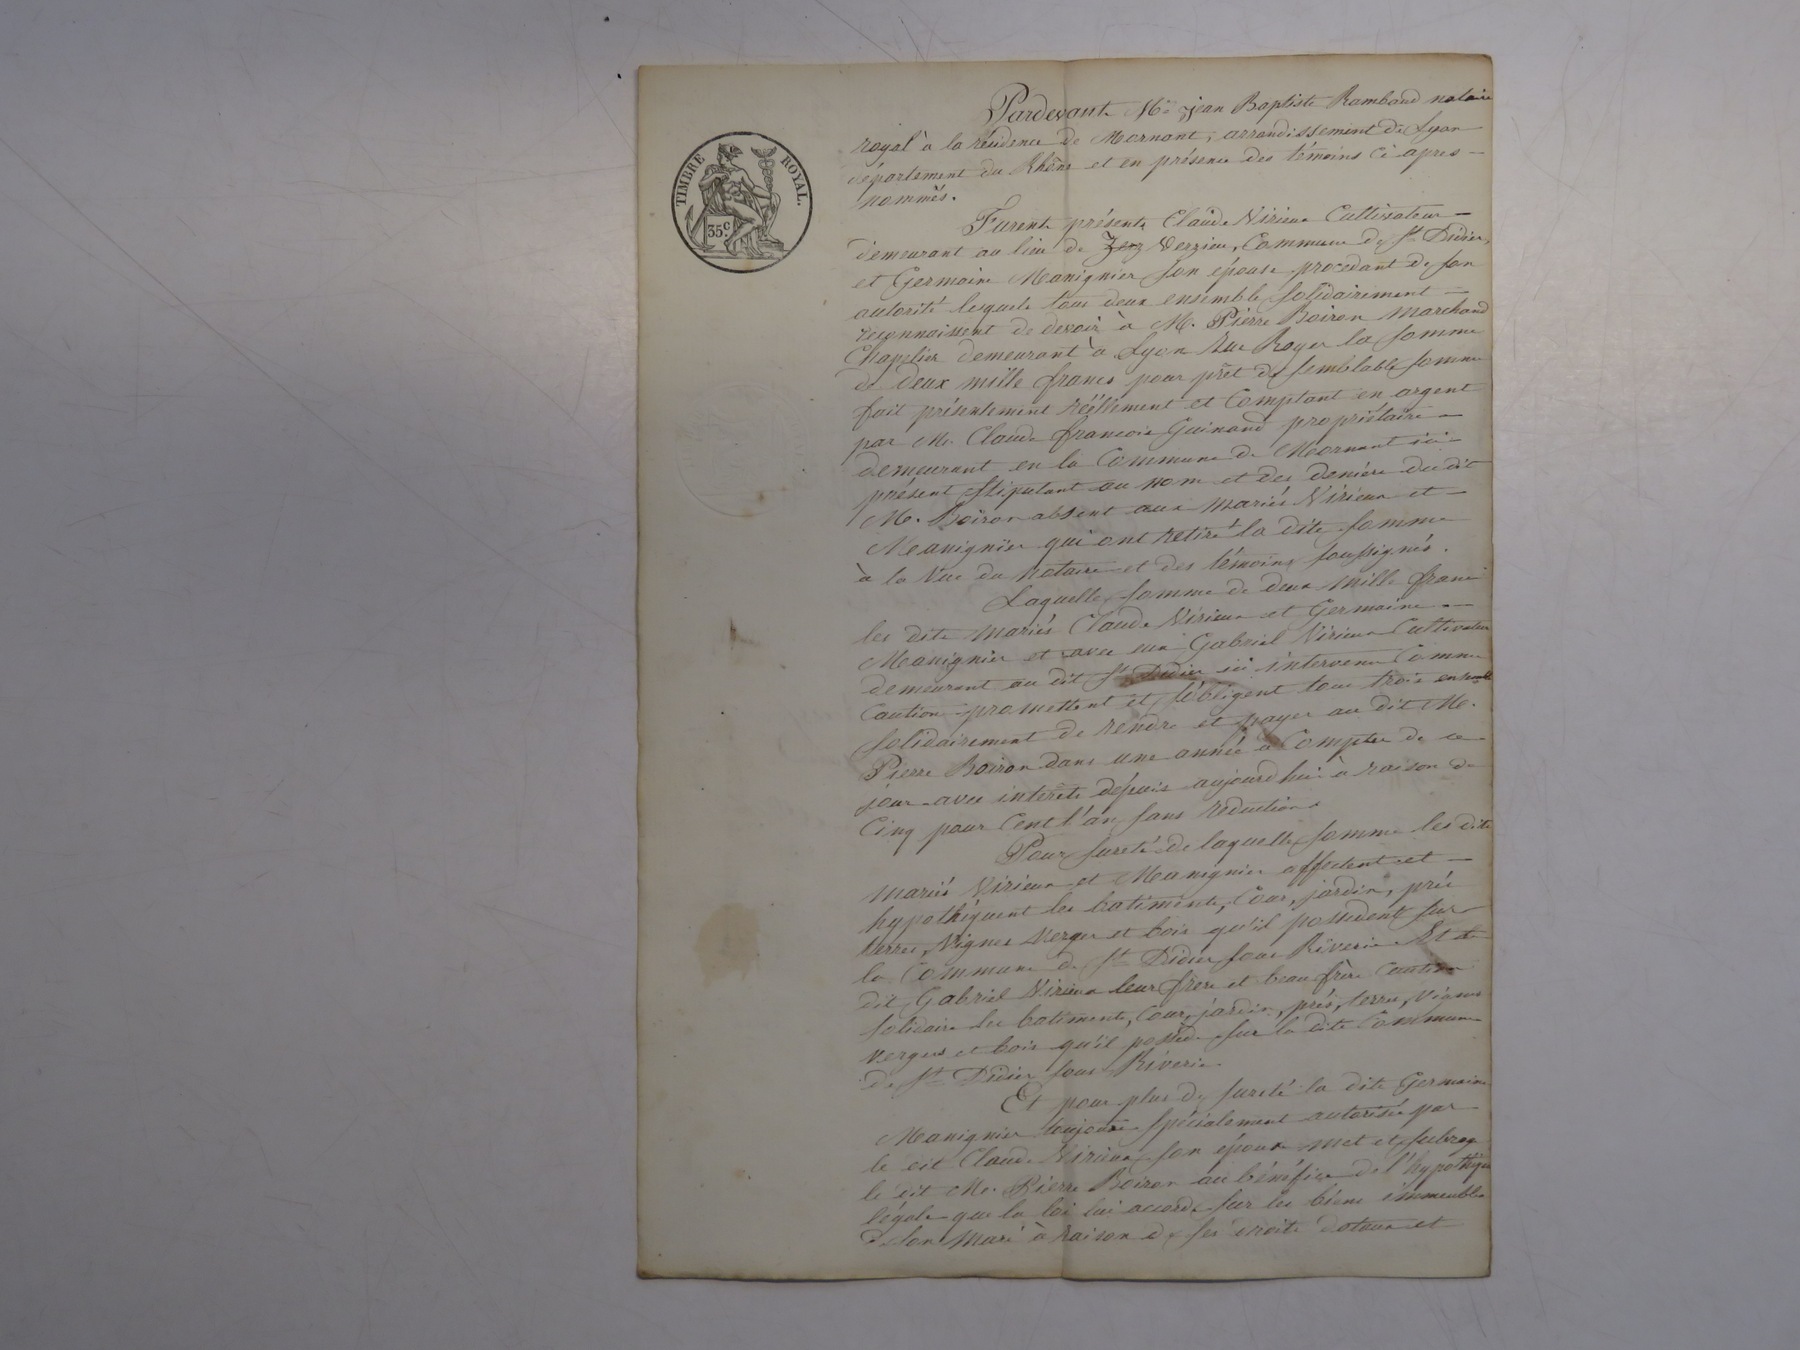 TIMBRE ROYAL.
35c.
Pardevant Me jean Baptiste Rambaud notaire
royal à la résidence de Mornant, arrondissement de Lyon
département du Rhône et en présence des témoins ci apres
nommés.
Furent présents Claude Virieux Cultivateur
demeurant au lieu de Verzieu, Commune de St Didier,
et Germaine Manignier son épouse procedant de son
autorité lesquels tous deux ensemble solidairement
reconnaissent de devoir à M. Pierre Boiron Marchand
Chapelier demeurant à Lyon Rue Royer la somme
de deux mille francs pour prêt de semblable somme
fait présentement réellement et Comptant en argent
par M. Claude francois Guinand propriétaire
demeurant en la Commune de Mornant ici
présent stipulant au nom et des deniers du dit
M. Boiron absent aux mariés Virieux et
Manignier qui ont retiré la dite somme
à la vue du notaire et des témoins soussignés.
Laquelle somme de deux mille francs
les dits mariés Claude Virieux et Germaine
Manignier et avec eux Gabriel Virieux Cultivateur
demeurant au dit St Didier ici intervenu Comme
Caution promettent et s'obligent tous trois ensemble
solidairement de rendre et payer au dit M.
Pierre Boiron dans une année à Compter de ce
jour avec intérêts dépuis aujourd'hui à raison de
Cinq pour Cent l'an sans réduction.
Pour sureté de laquelle somme les dits
mariés Virieux et Manignier affectent et
hypothèquent les batiments, Cour, jardin, prés
terres, Vignes Verger et bois qu'il possedent sur
la Commune de St Didier sous Riverie Et le
dit Gabriel Virieux leur frère et beau frère Caution
solidaire les batiments, Cour, jardin, prés, terres, vignes
vergers et bois qu'il possède sur la dite Commune
de St Didier sous Riverie
Et pour plus de sureté la dite Germaine
Manignier toujours spécialement autorisée par
le dit Claude Virieux son époux met et subroge
le dit M. Pierre Boiron au bénéfice de l'hypothèque
légale que la loi lui accorde sur les biens immeubles
de son Mari à raison de ses droits dotaux et